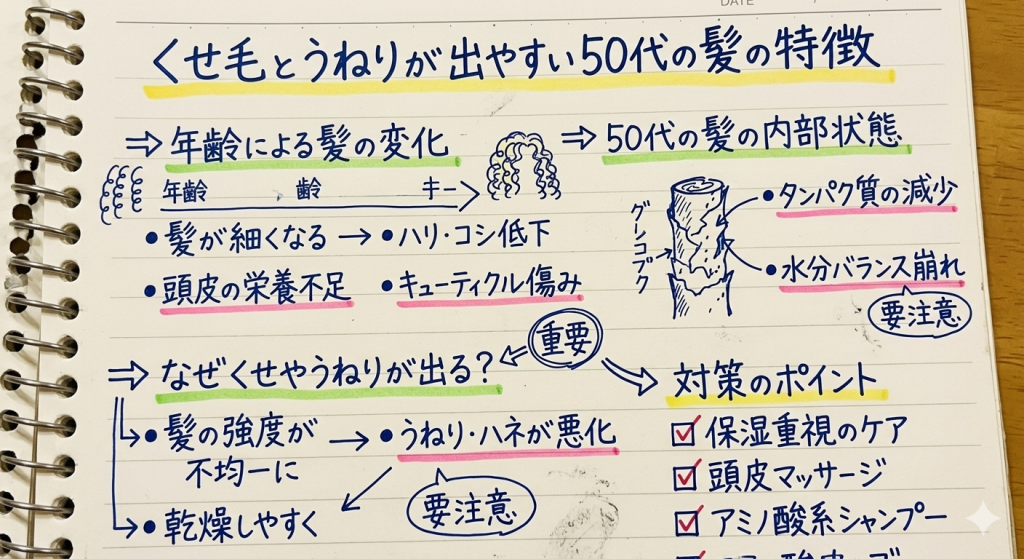 DATE
くせ毛とうねりが出やすい50代の髪の特徴
⇒年齢による髪の変化
年齢 、 齢 キー
・髪が細くなる → ・ハリ・コシ低下
・頭皮の栄養不足 ・キューティクル傷み
⇒50代の髪の内部状態
グレコブク
・タンパク質の減少
・水分バランス崩れ
要注意
重要
⇒なぜくせやうねりが出る?
・髪の強度が
不均一に
→ ・うねり・ハネが悪化
要注意
・乾燥しやすく
対策のポイント
☑保湿重視のケア
☑頭皮マッサージ
☑アミノ酸系シャンプー